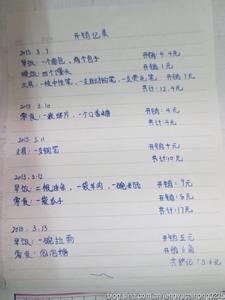 开销记录
2013.3.7
早饭：一个面包，两个包子 开销：4.4元
晚饭：四个馒头 开销1元
文具：一枝中性笔，一支自动铅笔，一支荧光笔 开销7元
共计：12.4元
2013.3.10
零食：一袋饼片，一个口香糖 开销：4元
共计：4元
2013.3.11
文具：一支钢笔 开销4元
共计10元
2013.3.12
早饭：二根油条，一袋牛肉，一碗 开销：9元
零食：一袋瓜子 开销：8元
共计：17元
2013.3.13
早饭：一碗拉面 开销五元
零食：泡泡糖 开销6角
共计：5.6元